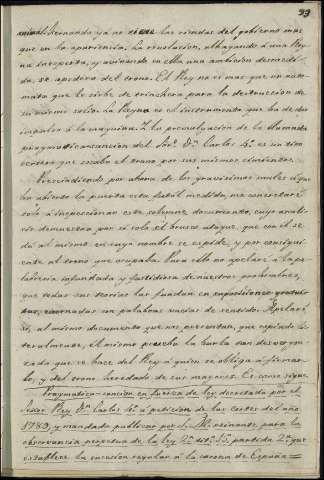 93
Fernando ya no tiene las riendas del gobierno mas
que en la apariencia. La revolucion, alhagando á una Rey-
na inesperta, y avivando en ella una ambicion desmedi-
da, se apodera del trono. El Rey no es mas que un autó-
mata que le sirbe de trinchera para la destruccion de
su mismo solio. La Reyna es el instrumento que ha de dar
impulso á la maquina. Y la promulgacion de la llamada
pragmatica-sancion del Sor. Dn. Carlos 4º es un tiro
certero que socaba el trono por sus mismos cimientos.
Prescindiendo por ahora de los gravisimos males á que
ha abierto la puerta esta fatal medida, me concretaré
solo á inspeccionar este solemne documento, cuyo anali-
sis demuestra por sí solo el brusco ataque, que con él se
da al mismo en cuyo nombre se espide, y por consiguien-
te al trono que ocupaba. Para ello no apelaré á la pa-
labreria infundada y fastidiosa de nuestros prohombres,
que todas sus teorias las fundan en suposiciones gratui-
tas, exornadas con palabras vacias de sentido. Apelaré
sí, al mismo documento que nos presentan, que copiado li-
teralmente, él mismo prueba la burla tan desvergon-
zada que se hace del Rey á quien se obliga á firmar-
lo, y del trono heredado de sus mayores. Es como sigue
Pragmatica-sancion en fuerza de ley, decretada por el
Señor Rey Dn. Carlos 4º á peticion de las cortes del año
1789, y mandada publicar por S. M. reinante para la
observancia perpetua de la ley 2ª titº 15, partida 2ª que
establece la sucesion regular á la corona de España =